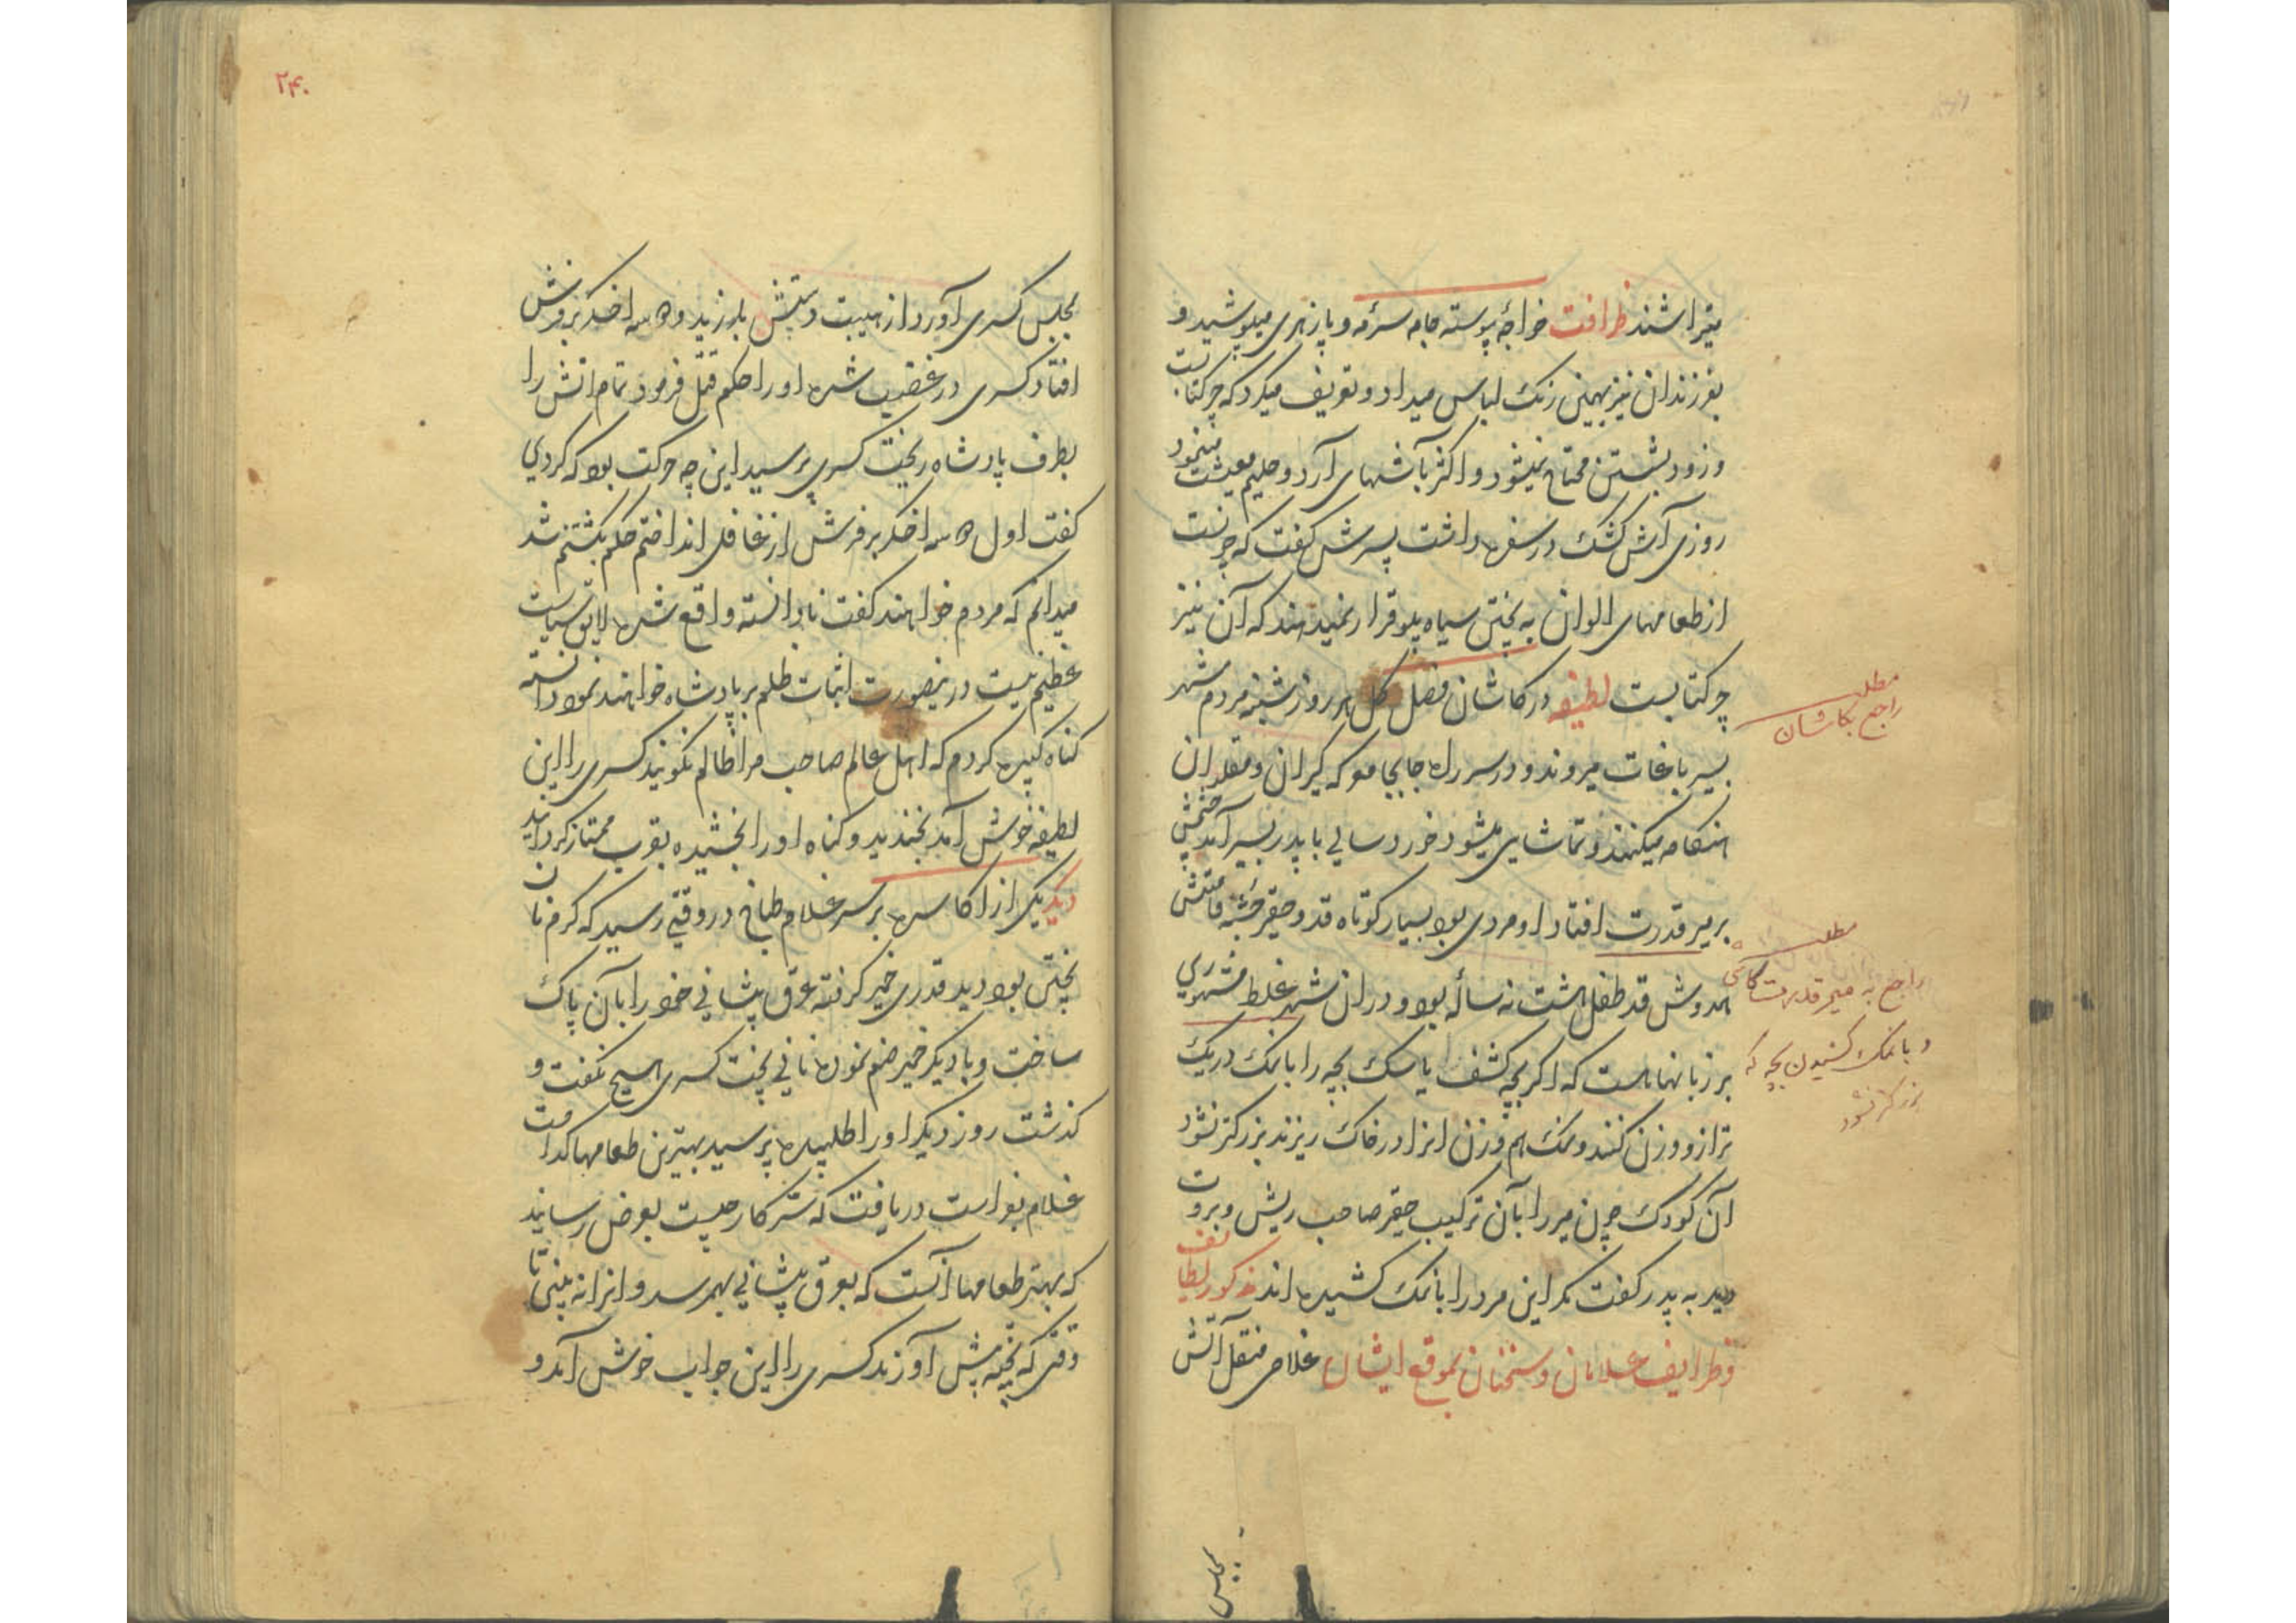 میتراشند ظرافت خواجهٔ پیوسته جامه سرمهٔ و پازهری میپوشید و
بفرزندان نیز بهمین رنک لباس میداد و تعریف میکرد که چرکتابست
و زود بشستن محتاج نمیشود و اکثر بآشهای آرد و حلیم معیشت مینمود
روزی آش کشک در سفره داشت پسرش کفت که چونست
از طعامهای الوان به پختن سیاه پلو قرار نمیدهند که آن نیز
چرکتابست لطیفه در کاشان فصل کل هر روز شنبه مردم شهر
بسیر باغات میروند و در سر راه جابجا معرکه کیران و مقلدان
هنکامه میکنند و تماشایی میشود خورد سالی با پدر بسیر آمد چشمش
بر میر قدرت افتاد او مردی بود بسیار کوتاه قد و حقیر جثه قامتش
همدوش قد طفل هشت نه ساله بود و در ان شهر غلط مشهوری
بر زبانهاست که اکر بچه کشف یا سک بچه را با نمک در یک
ترازو وزن کنند و نمک هم وزن انرا در خاک ریزند بزرکتر نشود
آن کودک چون میر را بآن ترکیب حقیر صاحب ریش و بروت
دید به پدر کفت مکر این مرد را با نمک کشیده اند مذکور لطائف
و ظرایف غلامان و سخنان بموقع ایشان غلامی منقل آتش
مطلب
راجع بکاشان
مطلب
راجع به میر قدرت کاشی
و با نمک کشیدن بچه که
بزرکتر نشود
مجلس
۲۴۰
مجلس کسری آورد از هیبت دستش بلرزید و دو سه اخکر بر فرش
افتاد کسری در غضب شده او را حکم قتل فرمود تمام اتش را
بطرف پادشاه ریخت کسری پرسید این چه حرکت بود که کردی
کفت اول دو سه اخکر بر فرش از غافلی انداختم حکم بکشتنم شد
میدانم که مردم خواهند کفت نادانسته واقع شده لایق سیاست
عظیم نیست درینصورت اثبات ظلم بر پادشاه خواهند نمود دانسته
کناه کبیره کردم که اهل عالم صاحب مرا ظالم نکویند کسری را این
لطیفه خوش آمد بخندید و کناه او را بخشیده بقرب ممتاز کردانید
دیکر یکی از اکاسره بر سر غلام طباخ در وقتی رسید که کرم نان
پختن بود دید قدری خمیر کرفته عرق پیشانی خود را بآن پاک
ساخت و با دیکر خمیر ضم نموده نانی پخت کسری هیچ نکفت و
کذشت روز دیکر او را طلبیده پرسید بهترین طعامها کدامست
غلام بفراست دریافت که سر کار چیست بعرض رسانید
که بهتر طعامها آنست که بعرق پیشانی بهم رسد و انرا نه بینی تا
وقتی که پخته پیش آورند کسری را این جواب خوش آمد و